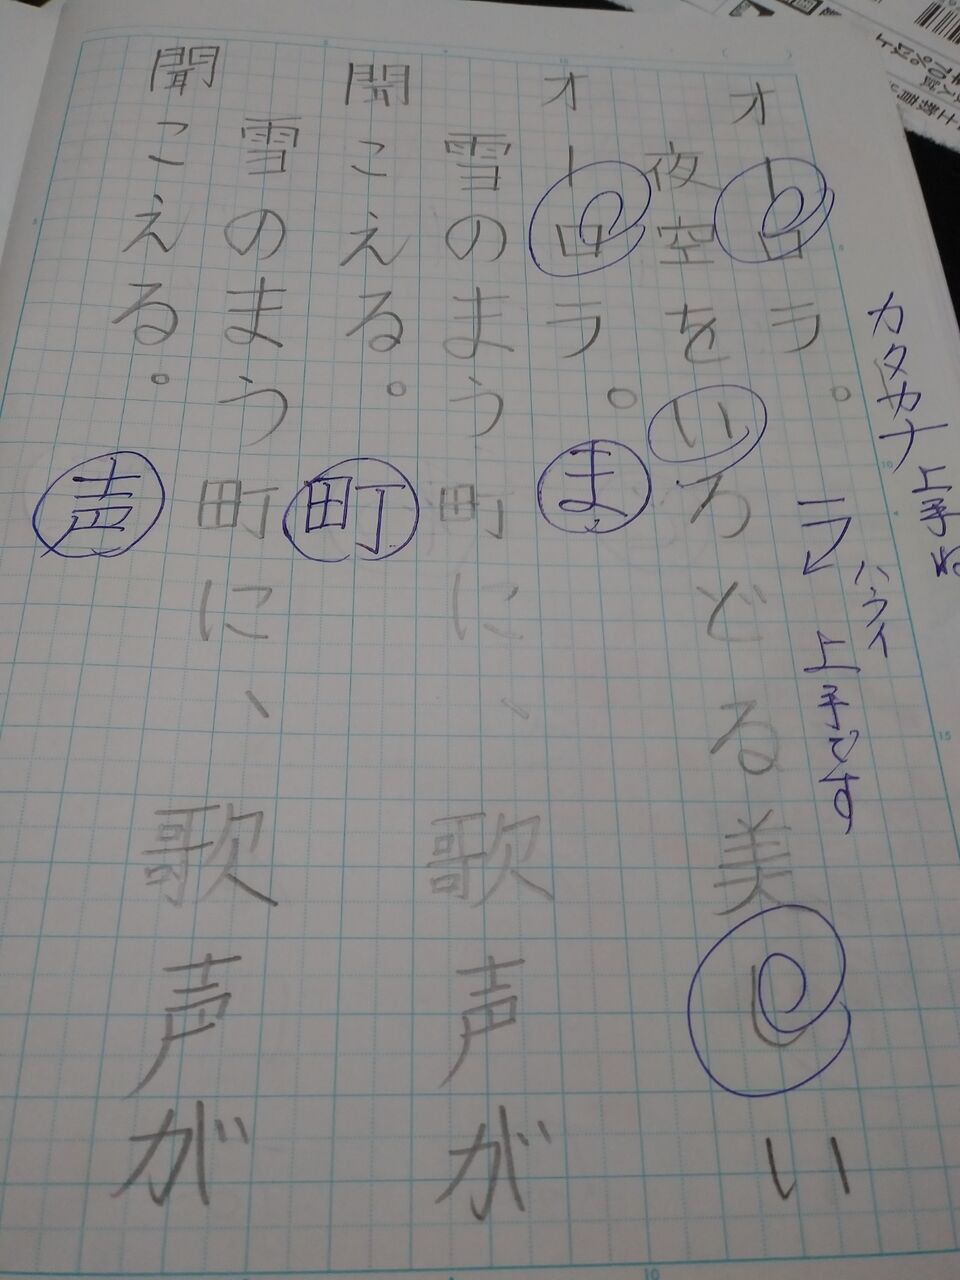 カタカナ上手ね
ラ ハライ 上手です
オーロラ。
夜空をいろどる美しい
オーロラ。
ま
雪のまう町に、歌声が
聞こえる。
町
雪のまう町に、歌声が
聞こえる。
声